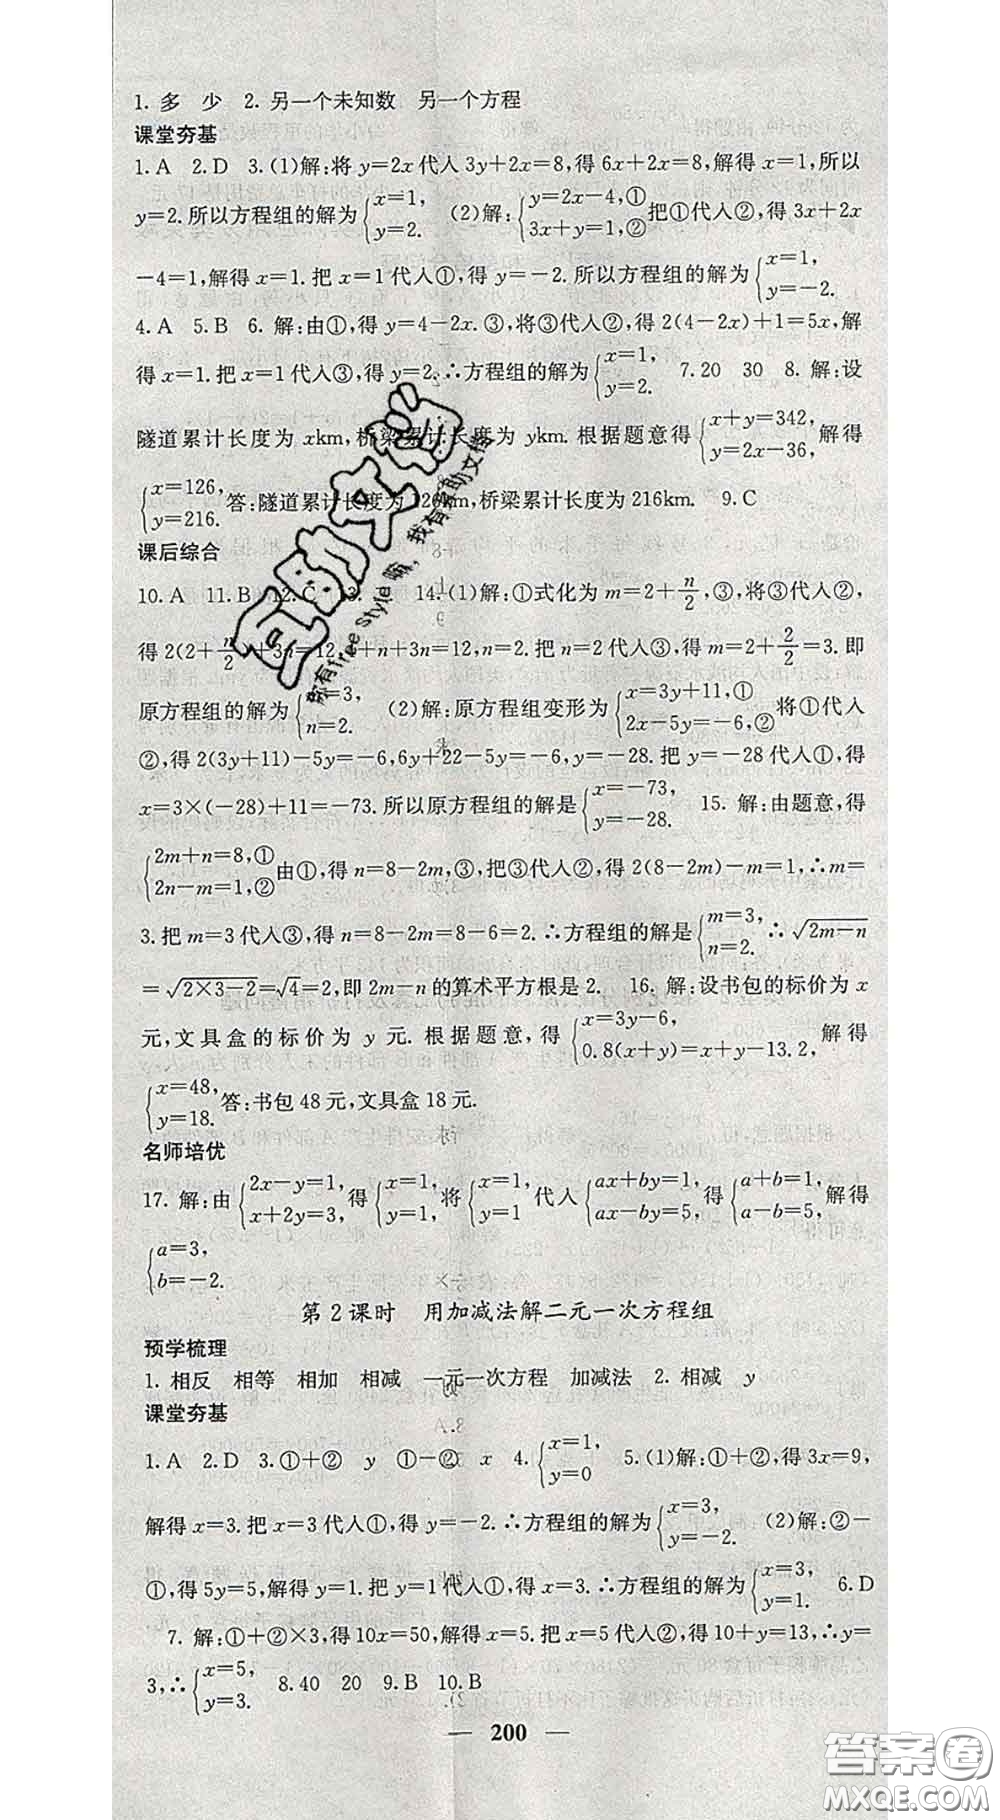 1. 多 少 2. 另一个未知数 另一个方程
课堂夯基
1. A 2. D 3. (1)解:将 y=2x 代入 3y+2x=8,得 6x+2x=8,解得 x=1,所以
y=2. 所以方程组的解为{x=1, y=2. (2)解:{y=2x-4,① 3x+y=1,② 把①代入②,得 3x+2x
-4=1,解得 x=1. 把 x=1 代入①,得 y=-2. 所以方程组的解为{x=1, y=-2.
4. A 5. B 6. 解:由①,得 y=4-2x. ③,将③代入②,得 2(4-2x)+1=5x,解
得 x=1. 把 x=1 代入③,得 y=2. ∴方程组的解为{x=1, y=2. 7. 20 30 8. 解:设
隧道累计长度为 xkm,桥梁累计长度为 ykm. 根据题意得{x+y=342, y=2x-36, 解得
{x=126, y=216. 答:隧道累计长度为 126km,桥梁累计长度为 216km. 9. C
课后综合
10. A 11. B 12. C 13. 14. (1)解:①式化为 m=2+n/2,③,将③代入②,
得 2(2+n/2)+3n=12,4+n+3n=12,n=2. 把 n=2 代入③,得 m=2+2/2=3. 即
原方程组的解为{m=3, n=2. (2)解:原方程组变形为{x=3y+11,① 2x-5y=-6,② 将①代入
②,得 2(3y+11)-5y=-6,6y+22-5y=-6,y=-28. 把 y=-28 代入①,得
x=3×(-28)+11=-73. 所以原方程组的解是{x=-73, y=-28. 15. 解:由题意,得
{2m+n=8,① 2n-m=1,② 由①,得 n=8-2m,③,把③代入②,得 2(8-2m)-m=1,∴m=
3. 把 m=3 代入③,得 n=8-2m=8-6=2. ∴方程组的解是{m=3, n=2. ∴√(2m-n)
=√(2×3-2)=√4=2,即 2m-n 的算术平方根是 2. 16. 解:设书包的标价为 x
元,文具盒的标价为 y 元. 根据题意,得{x=3y-6, 0.8(x+y)=x+y-13.2, 解得
{x=48, y=18. 答:书包 48 元,文具盒 18 元.
名师培优
17. 解:由{2x-y=1, x+2y=3, 得{x=1, y=1, 将{x=1, y=1 代入{ax+by=1, ax-by=5, 得{a+b=1, a-b=5, 解得
{a=3, b=-2.
第 2 课时 用加减法解二元一次方程组
预学梳理
1. 相反 相等 相加 相减 一元一次方程 加减法 2. 相减 y
课堂夯基
1. A 2. D 3. ①+② y ①-② x 4. {x=1, y=0 5. (1)解:①+②,得 3x=9,
解得 x=3. 把 x=3 代入①,得 y=-2. ∴方程组的解为{x=3, y=-2. (2)解:②-
①,得 5y=5,解得 y=1. 把 y=1 代入①,得 x=3. ∴方程组的解为{x=3, y=1. 6. D
7. 解:①+②×3,得 10x=50,解得 x=5. 把 x=5 代入②,得 10+y=13,∴y=
3,∴{x=5, y=3. 8. 40 20 9. B 10. B
— 200 —
互助文档
你有free style嘛，我有互助文档
答案圈
MXQE.COM